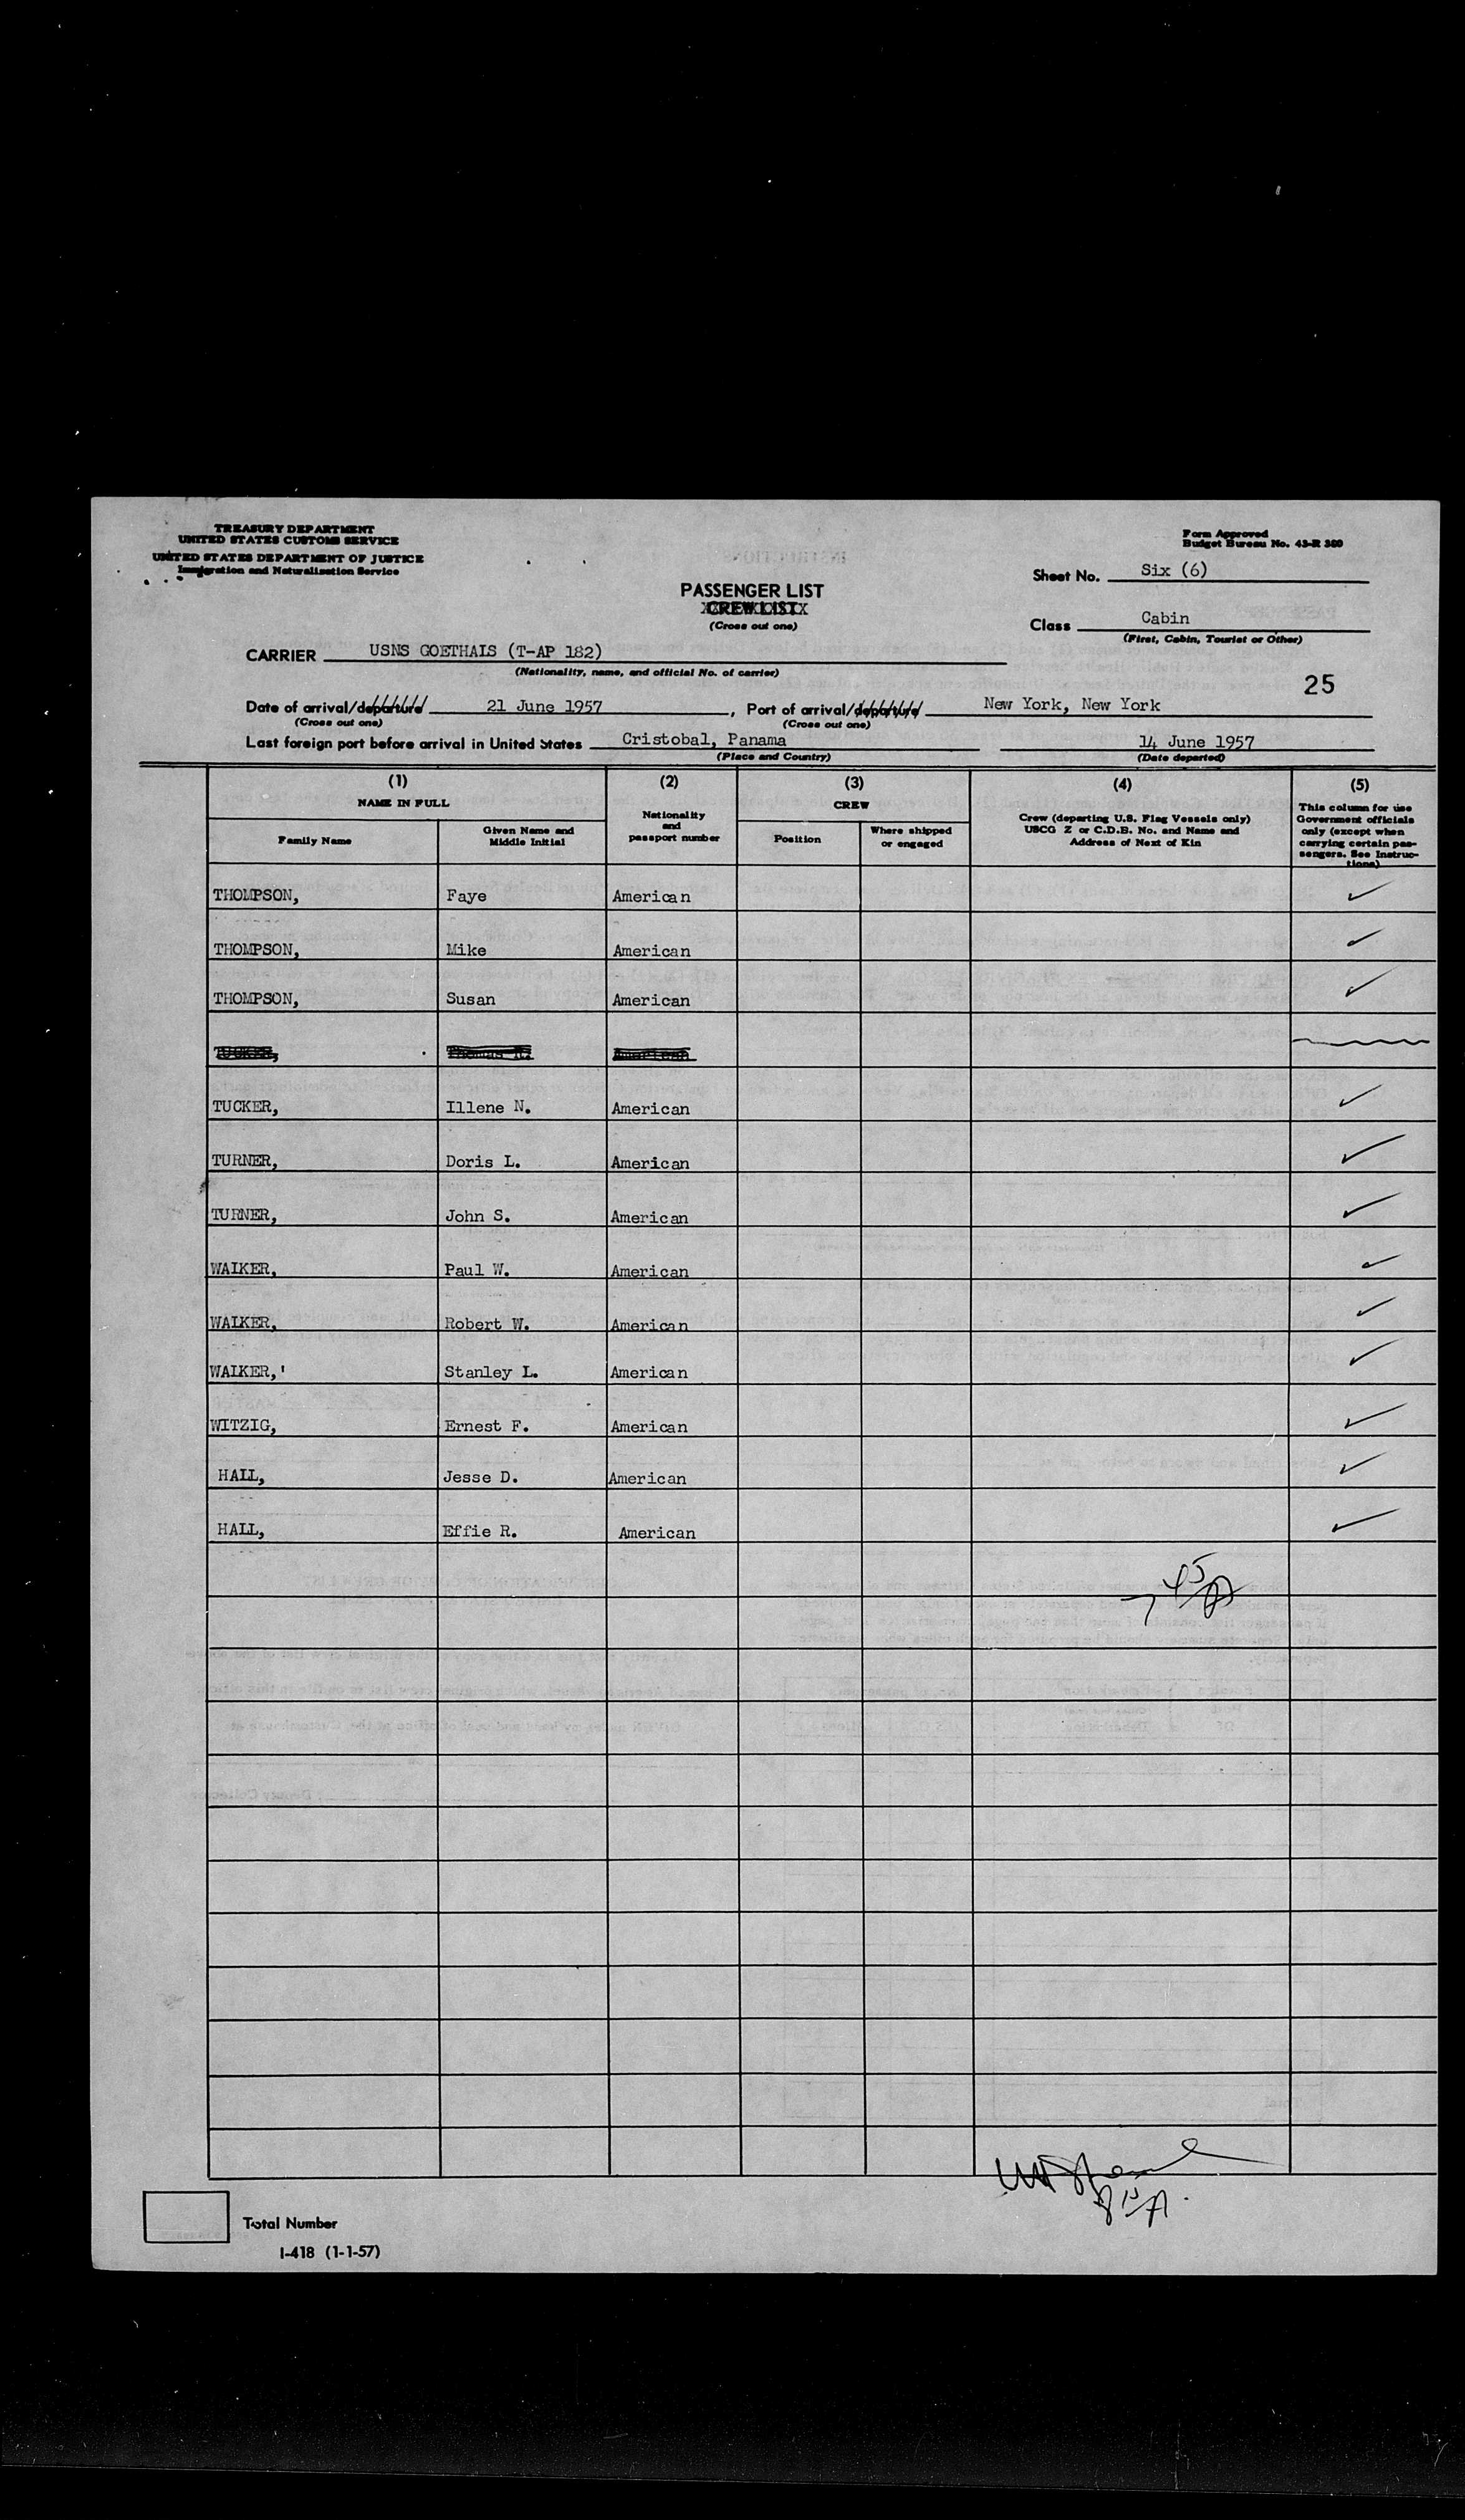 TREASURY DEPARTMENT
UNITED STATES CUSTOMS SERVICE
UNITED STATES DEPARTMENT OF JUSTICE
Immigration and Naturalization Service
Form Approved
Budget Bureau No. 43-R 380
Sheet No. Six (6)
PASSENGER LIST
CREW LIST
(Cross out one)
Class Cabin
(First, Cabin, Tourist or Other)
CARRIER USNS GOETHAIS (T-AP 182)
(Nationality, name, and official No. of carrier)
25
Date of arrival/departure 21 June 1957, Port of arrival/departure New York, New York
(Cross out one) (Cross out one)
Last foreign port before arrival in United States Cristobal, Panama 14 June 1957
(Place and Country) (Date departed)
(1) (2) (3) (4) (5)
NAME IN FULL Nationality and passport number CREW Crew (departing U.S. Flag Vessels only) USCG Z or C.D.B. No. and Name and Address of Next of Kin This column for use Government officials only (except when carrying certain passengers. See Instructions)
Family Name Given Name and Middle Initial Position Where shipped or engaged
THOMPSON, Faye American ✓
THOMPSON, Mike American ✓
THOMPSON, Susan American ✓
TUCKER, Thomas American
TUCKER, Illene N. American ✓
TURNER, Doris L. American ✓
TURNER, John S. American ✓
WAIKER, Paul W. American ✓
WAIKER, Robert W. American ✓
WAIKER,' Stanley L. American ✓
WITZIG, Ernest F. American ✓
HALL, Jesse D. American ✓
HALL, Effie R. American ✓
Total Number
I-418 (1-1-57)